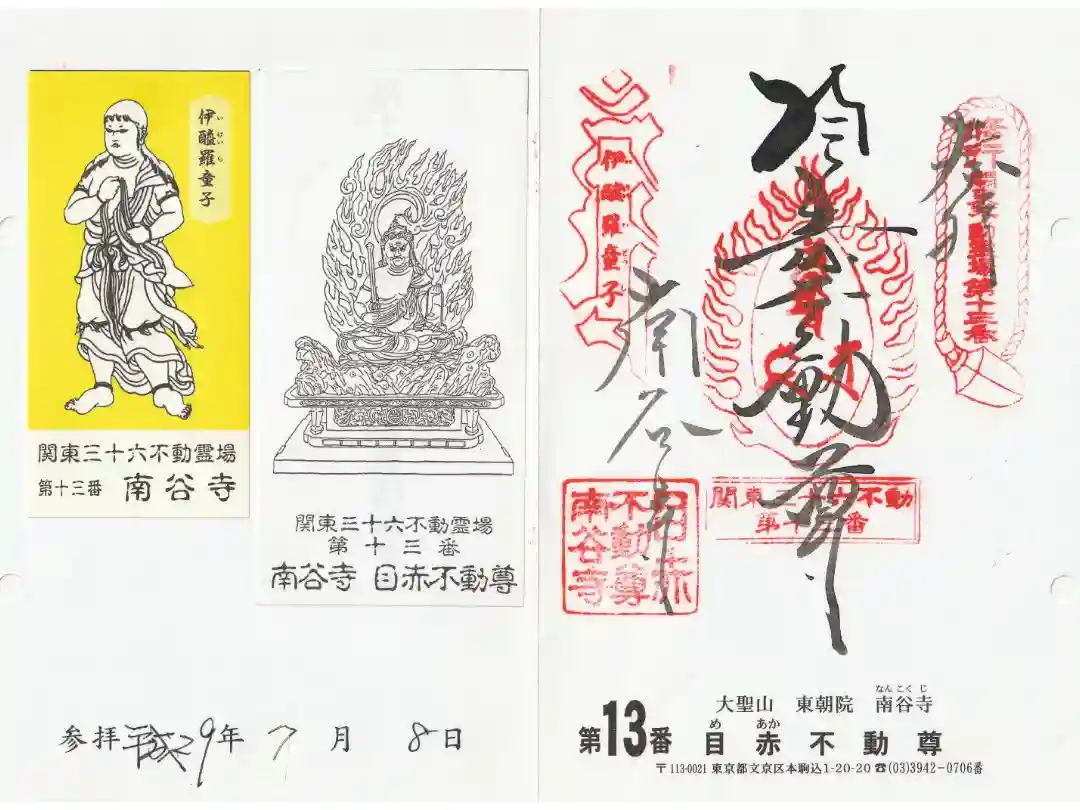 いけいら
伊醯羅童子
関東三十六不動霊場
第十三番 南谷寺
関東三十六不動霊場
第十三番
南谷寺 目赤不動尊
参拝平成29年7月8日
奉拝
動尊
南谷寺
伊醯羅童子
関東三十六不動
第十三番
目赤
不動尊
南谷寺
なんこくじ
大聖山 東朝院 南谷寺
めあか
第13番 目赤不動尊
〒113-0021 東京都文京区本駒込1-20-20 ☎(03)3942-0706番